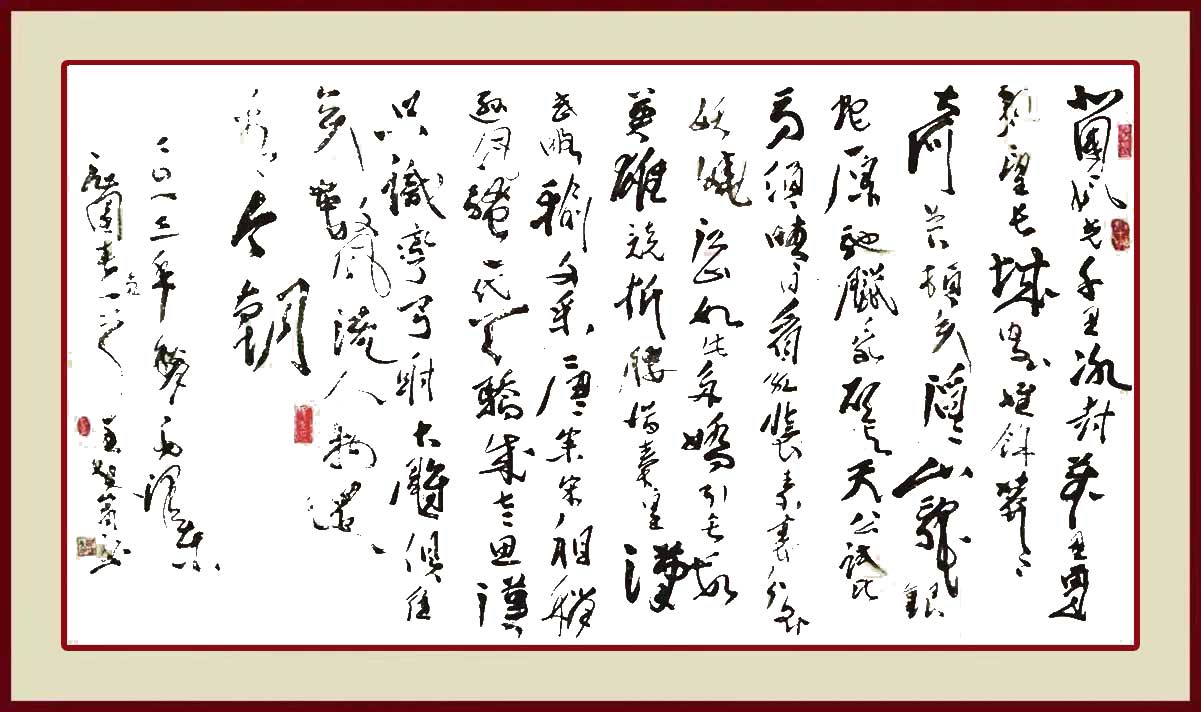 北國風光千里冰封萬里雪
飄望長城內外惟餘莽〻
大河上下頓失滔〻山舞銀
蛇原馳臘象欲與天公試比
高須晴日看紅裝素裹分外
妖嬈江山如此多嬌引無數
英雄競折腰惜秦皇漢
武略輸文采唐宗宋祖稍
遜風騷一代天驕成吉思漢
只識彎弓射大雕俱往
矣數風流人物還
看今朝
二〇一三年 毛澤東
沁園春雪 王